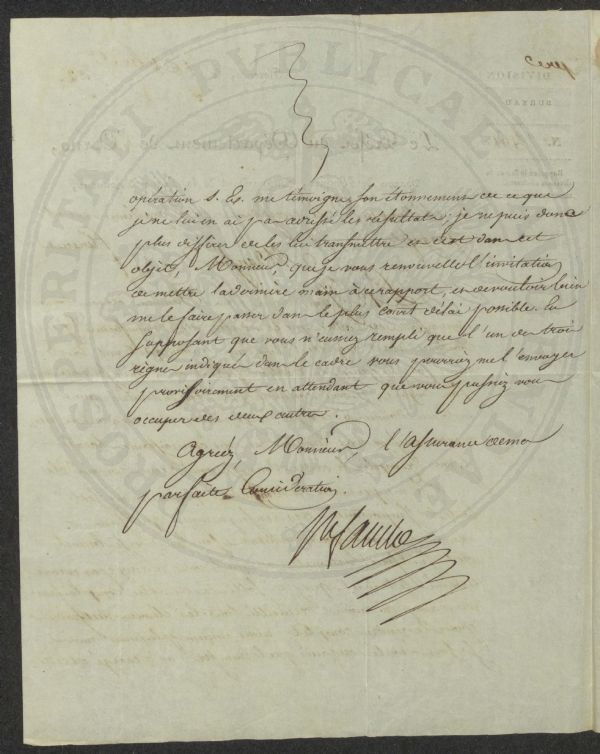 opération S. Ex. me témoigne son étonnement de ce que
je ne lui en ai pas adressé les résultats; je ne puis donc
plus différer de les lui transmettre et c'est dans cet
objet, Monsieur, que je vous renouvelle l'invitation
de mettre la dernière main à ce rapport, et de vouloir bien
me le faire passer dans le plus court délai possible. En
supposant que vous n'eussiez rempli que l'un des trois
règnes indiqués dans le cadre vous pourriez me l'envoyer
provisoirement en attendant que vous puissiez vous
occuper des deux autres.
Agréez, Monsieur, l'assurance de ma
parfaite Considération.